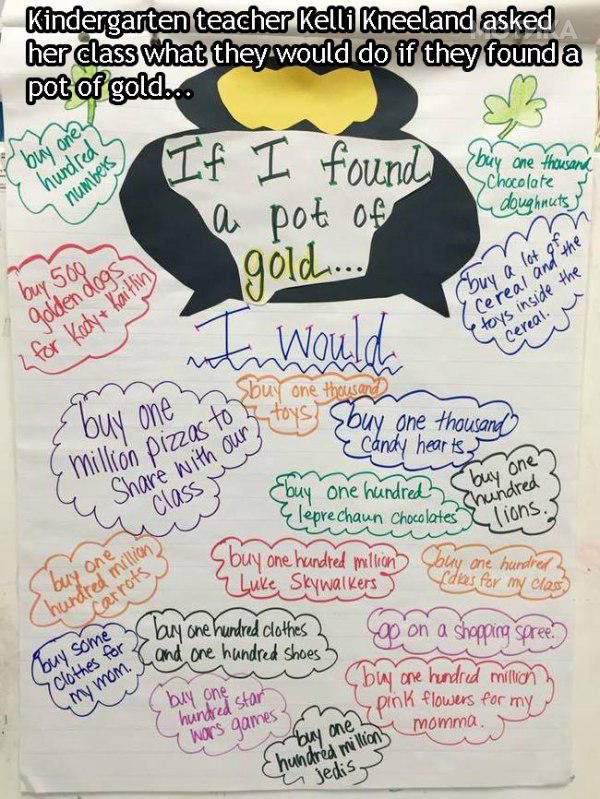 Kindergarten teacher Kelli Kneeland asked
her class what they would do if they found a
pot of gold...
If I found
a pot of
gold...
I would
buy one
hundred
numbers
buy one thousand
Chocolate
doughnuts
buy 500
golden dogs
for Kody + Kaitlin
buy a lot of
cereal and the
toys inside the
cereal.
buy one thousand
toys
buy one
million pizzas to
Share with our
class
buy one thousand
Candy hearts
buy one hundred
leprechaun Chocolates
buy one
hundred
lions.
buy one
hundred million
carrots
buy one hundred million
Luke Skywalkers
buy one hundred
for my class
buy some
clothes for
my mom.
buy one hundred clothes
and one hundred shoes
go on a shopping spree.
buy one hundred million
pink flowers for my
momma.
buy one
hundred star
wars games
buy one
hundred million
jedis